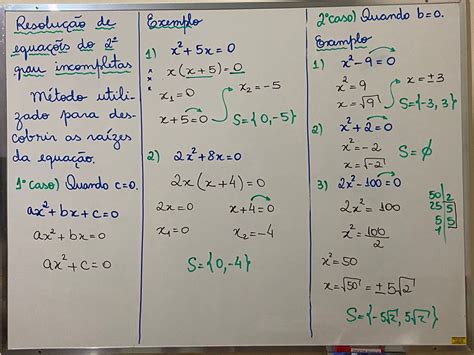 Resolução de
equações do 2º
grau incompletas
Método utili-
zado para des-
cobrir as raízes
da equação.
1º caso) Quando c=0.
ax²+bx+c=0
ax²+bx=0
ax²+c=0
Exemplo
1) x²+5x=0
x(x+5)=0
x₁=0
x+5=0
x₂=-5
S={0,-5}
2) 2x²+8x=0
2x(x+4)=0
2x=0 x+4=0
x₁=0 x₂=-4
S={0,-4}
2º caso) Quando b=0.
Exemplo
1) x²-9=0
x²=9
x=√9
x=±3
S={-3,3}
2) x²+2=0
x²=-2
x=√-2
S=∅
3) 2x²-100=0
2x²=100
x²=100/2
x²=50
x=√50=±5√2
S={-5√2,5√2}
50 2
25 5
5 5
1